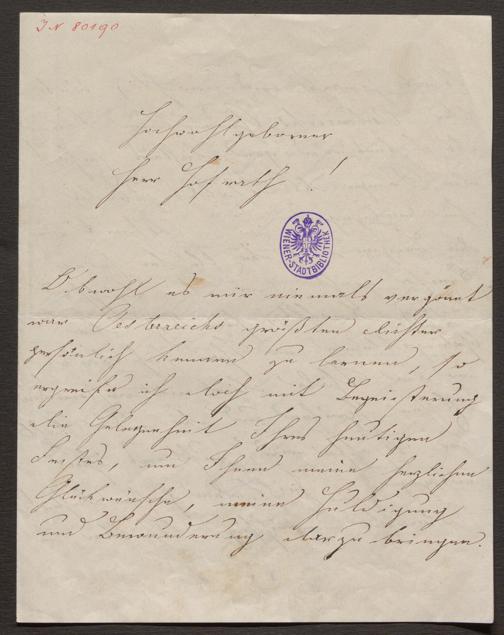 IN 80190
Hochwohlgeborner
Herr Hofrath!
WIENER-STADTBIBLIOTHEK
Obwohl es mir niemals vergönnt
war Oesterreichs größten Dichter
persönlich kennen zu lernen, so
ergreife ich doch mit Begeisterung
die Gelegenheit Ihres heutigen
Festes, um Ihnen meine herzlichen
Glückwünsche, meine Huldigung
und Bewunderung darzubringen.